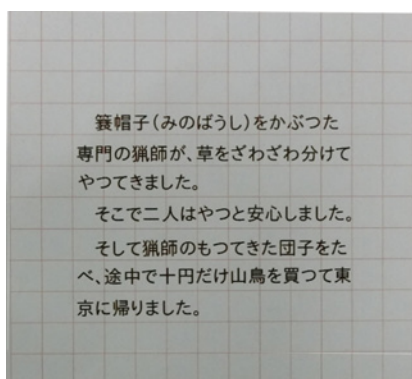 簑帽子(みのぼうし)をかぶつた
専門の猟師が、草をざわざわ分けて
やつてきました。
　そこで二人はやつと安心しました。
　そして猟師のもつてきた団子をた
べ、途中で十円だけ山鳥を買つて東
京に帰りました。